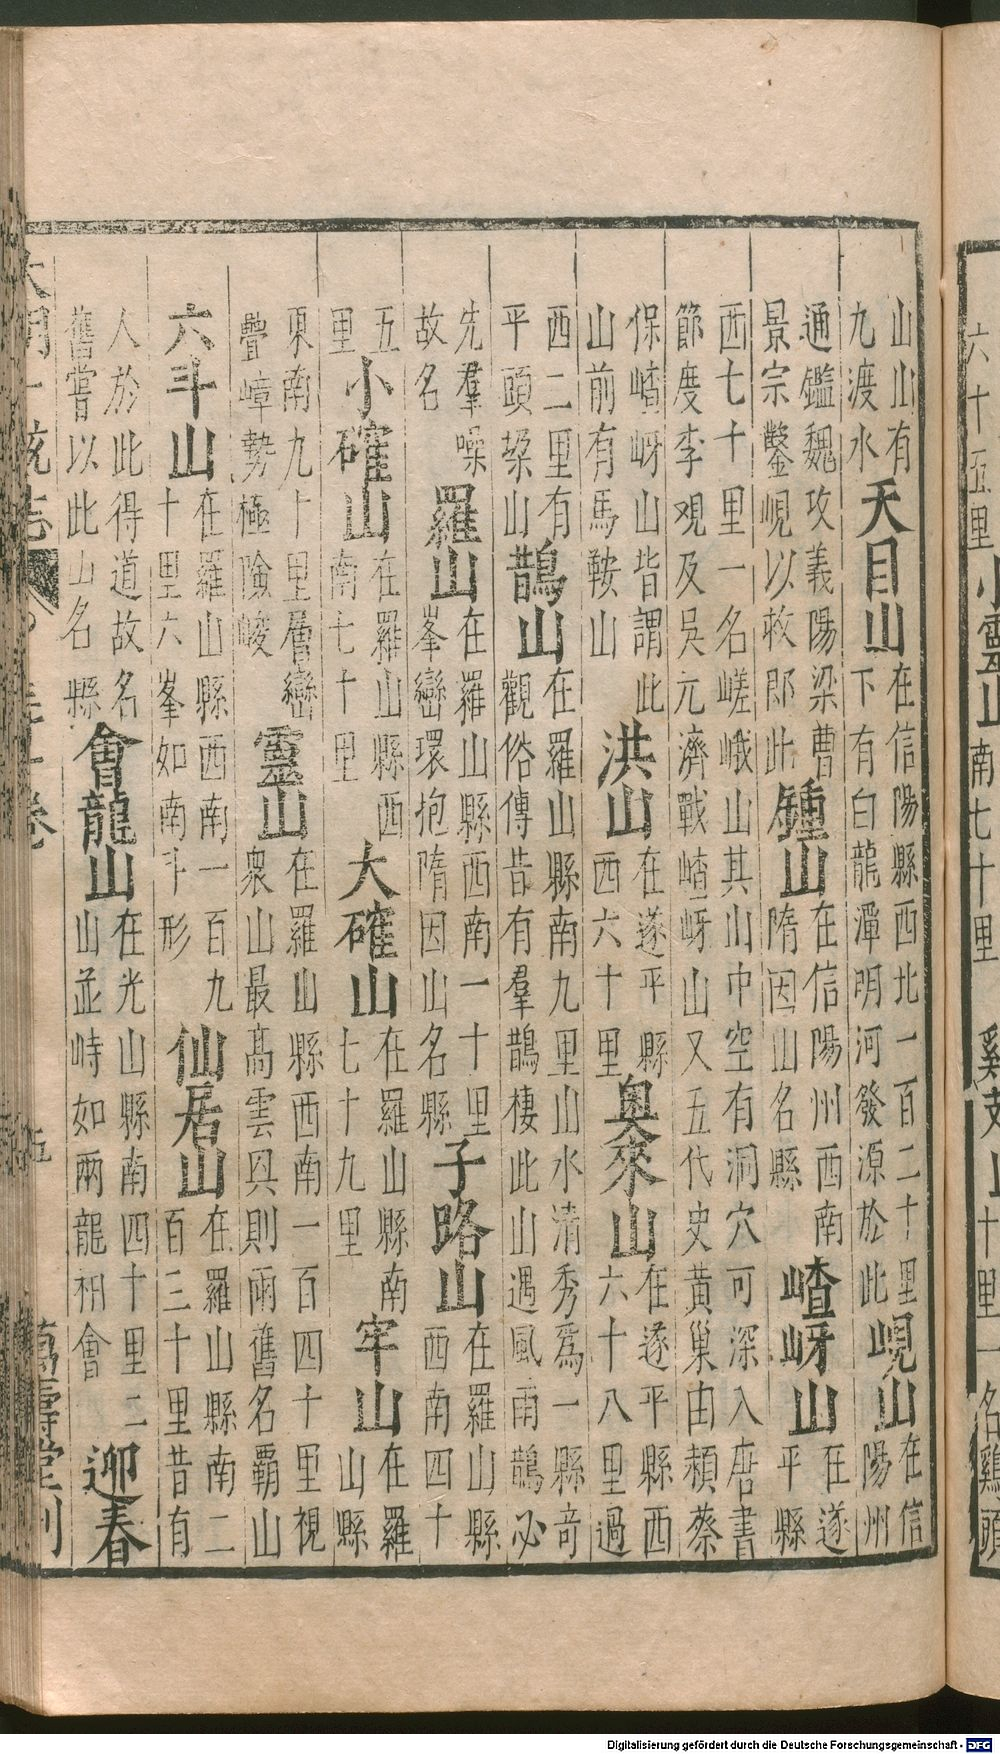 六十五里
小靈山
南七十里
十里一名雞頭
山山有
九渡水
天目山
在信陽縣西北一百二十里
下有白龍潭明河發源於此
峴山
在信
陽州
通鑑魏攻義陽梁曹
景宗鑿峴以救郎此
鍾山
在信陽州西南
隋因山名縣
嵖岈山
在遂
平縣
西七十里一名嵯峨山其山中空有洞穴可深入唐書
節度李观及吳元濟戰嵖岈山又五代史黃巢由潁蔡
保嵖岈山皆謂此
山前有馬鞍山
洪山
在遂平縣
西六十里
奧來山
在遂平縣西
六十八里過
西二里有
平頭垜山
鵲山
在羅山縣南九里山水清秀爲一縣奇
觀俗傳昔有羣鵲棲此山遇風雨鵲必
先羣噪
故名
羅山
在羅山縣西南一十里
峯巒環抱隋因山名縣
子路山
在羅山縣
西南四十
五
里
小確山
在羅山縣西
南七十里
大確山
在羅山縣南
七十九里
牢山
在羅
山縣
東南九十里層巒
疊嶂勢極險峻
靈山
在羅山縣西南一百四十里視
衆山最高雲具則雨舊名霸山
六斗山
在羅山縣西南一百九
十里六峯如南斗形
仙居山
在羅山縣南二
百三十里昔有
人於此得道故名
舊嘗以此山名縣
會龍山
在光山縣南四十里二
山並峙如兩龍相會
迎春
大明一統志
五
萬壽堂刊
Digitalisierung gefördert durch die Deutsche Forschungsgemeinschaft - DFG